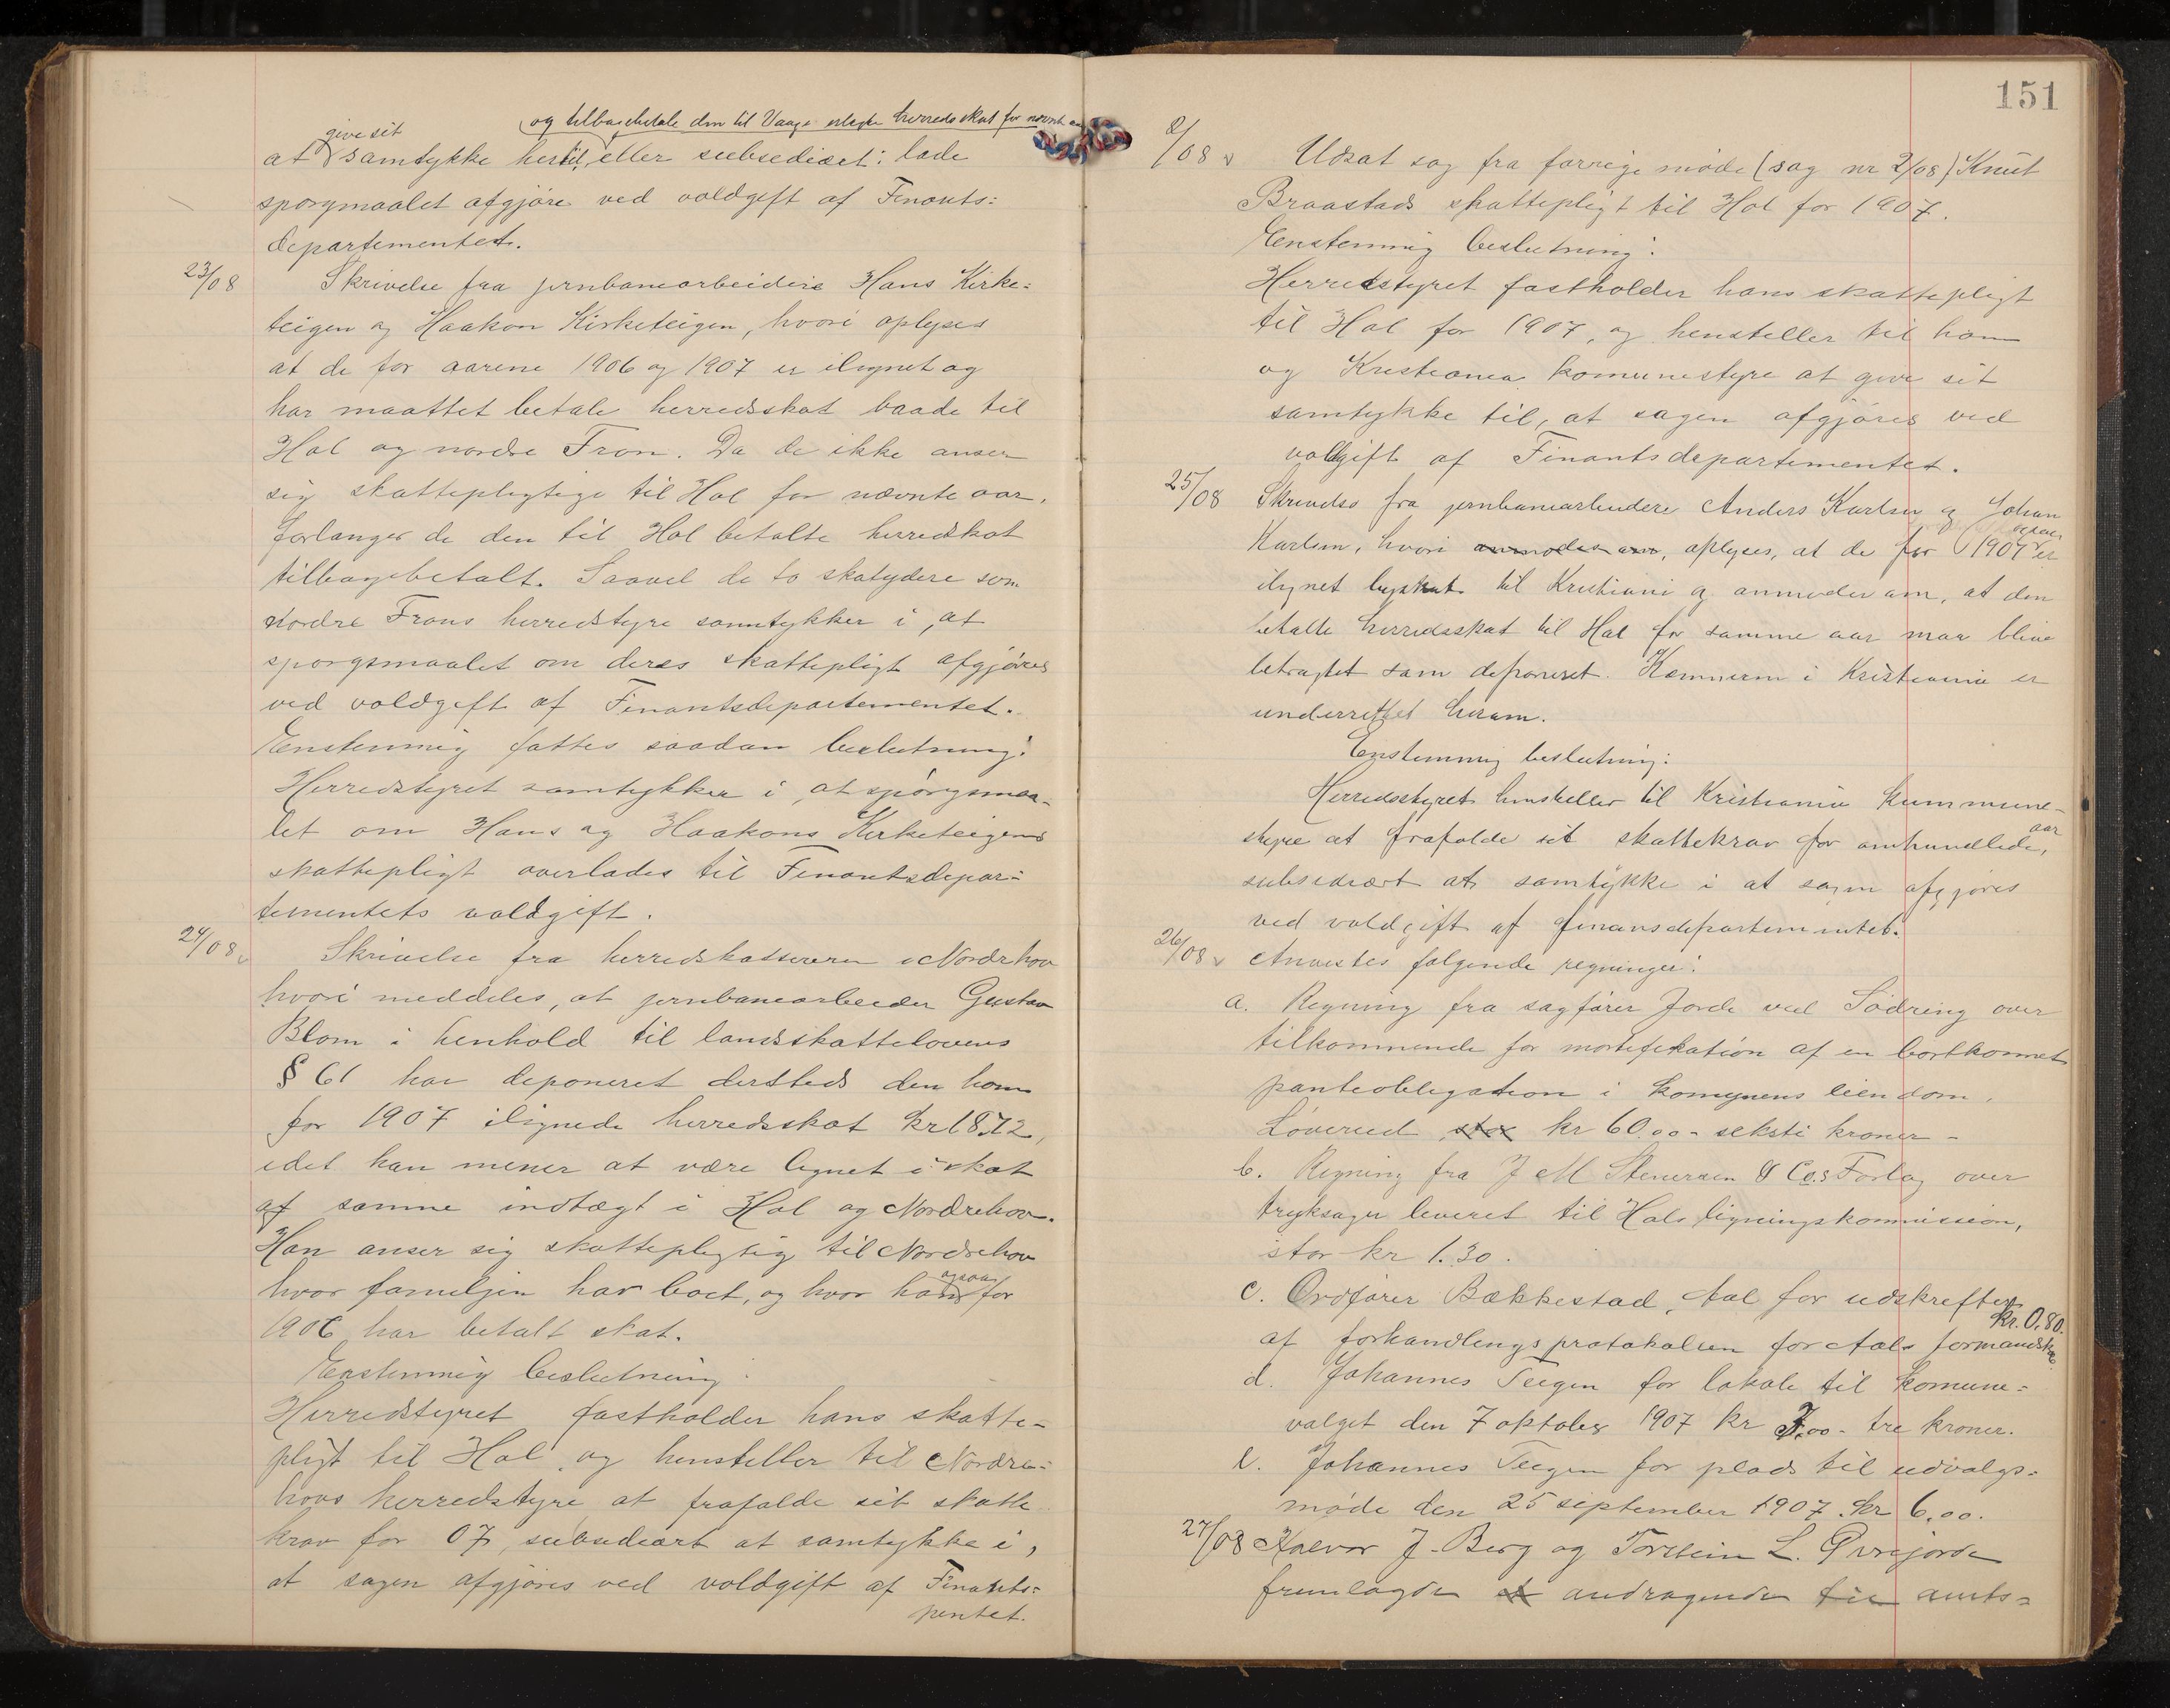 og tilbagebetale den til Vaage erlagte herredsskat for nævnte aar
give sit
at samtykke hertil, eller subsediært: lade
sporgmaalet afgjøre ved voldgift af Finants:
departementet.
23/08 Skrivelse fra jernbanearbeidere Hans Kirke:
teigen og Haakon Kirketeigen, hvori oplyses
at de for aarene 1906 og 1907 er ilignet og
har maattet betale herredsskat baade til
Hol og nordre Fron. Da de ikke anser
sig skattepligtige til Hol for nævnte aar,
forlanger de den til Hol betalte herredskat
tilbagebetalt. Saavel de to skatydere som
Nordre Frons herredstyre samtykker i, at
sporgsmaalet om deres skattepligt afgjøres
ved voldgift af Finantsdepartementet.
Enstemmig fattes saadan beslutning:
Herredstyret samtykker i, at spørgsmaa-
let om Hans og Haakons Kirketeigens
skattepligt overlades til Finantsdepar:
tementets voldgift.
24/08 Skrivelse fra herredskassereren i Nordrhov
hvori meddeles, at jernbanearbeider Gustav
Blom i henhold til landsskattelovens
§ 61 har deponeret dersteds den ham
for 1907 ilignede herredsskat kr 18.72,
idet han mener at være lignet i skat
af samme indtægt i Hol og Nordrehov.
Han anser sig skattepligtig til Nordrehov
hvor familjen har boet, og hvor han ogsaa for
1906 har betalt skat.
Enstemmig beslutning:
Herredstyret fastholder hans skatte-
pligt til Hol, og henstiller til Nordre:
hovs herredstyre at frafalde sit skatte
krav for 07, subsediært at samtykke i,
at sagen afgjøres ved voldgift af Finants:
pentet.
151
2/08 Udsat sag fra forrige møde (sag nr 2/08) Knut
Braastads skattepligt til Hol for 1907.
Enstemmig beslutning:
Herredstyret fastholder hans skattepligt
til Hol for 1907, og henstiller til ham
og Kristiania komunestyre at give sit
samtykke til, at sagen afgjøres ved
voldgift af Finantsdepartementet.
25/08 Skrivelse fra jernbanearbeidere Anders Karlsen og Johan
Karlsen, hvori anmodes om, oplyses, at de for 1907 ogsaa er
ilignet byskat til Kristiania og anmoder om, at den
betalte herredsskat til Hol for samme aar maa blive
betragtet som deponeret. Kemneren i Kristiania er
underrettet herom.
Enstemmig beslutning:
Herredsstyret henstiller til Kristiania kummune-
styre at frafalde sit skattekrav for omhandlede aar,
subsediært at samtykke i at sagen afgjøres
ved voldgift af finansdepartementet.
26/08 Anvistes følgende regninger:
a. Regning fra sagfører Jorde ved Sødring over
tilkommende for mortifikation af en bortkommet
panteobligation i komunens eiendom,
Løverud stor kr 60.00 - seksti kroner -
b. Regning fra J M Stenersen & Co.s Forlag over
tryksager leveret til Hols ligningskommission,
stor kr 1.30.
c. Ordfører Bækkestad, Aal for udskrifter
af forhandlingsprotokollen for Aals formandskab kr. 0,80.
d. Johannes Teigen for lokale til komune=
valget den 7 oktober 1907 kr 3.00 - tre kroner.
e. Johannes Teigen for plads til udvalgs=
møde den 25 september 1907. kr 6,00.
27/08 Halvor J. Berg og Torstein L.
fremlagde et andragende til amts=